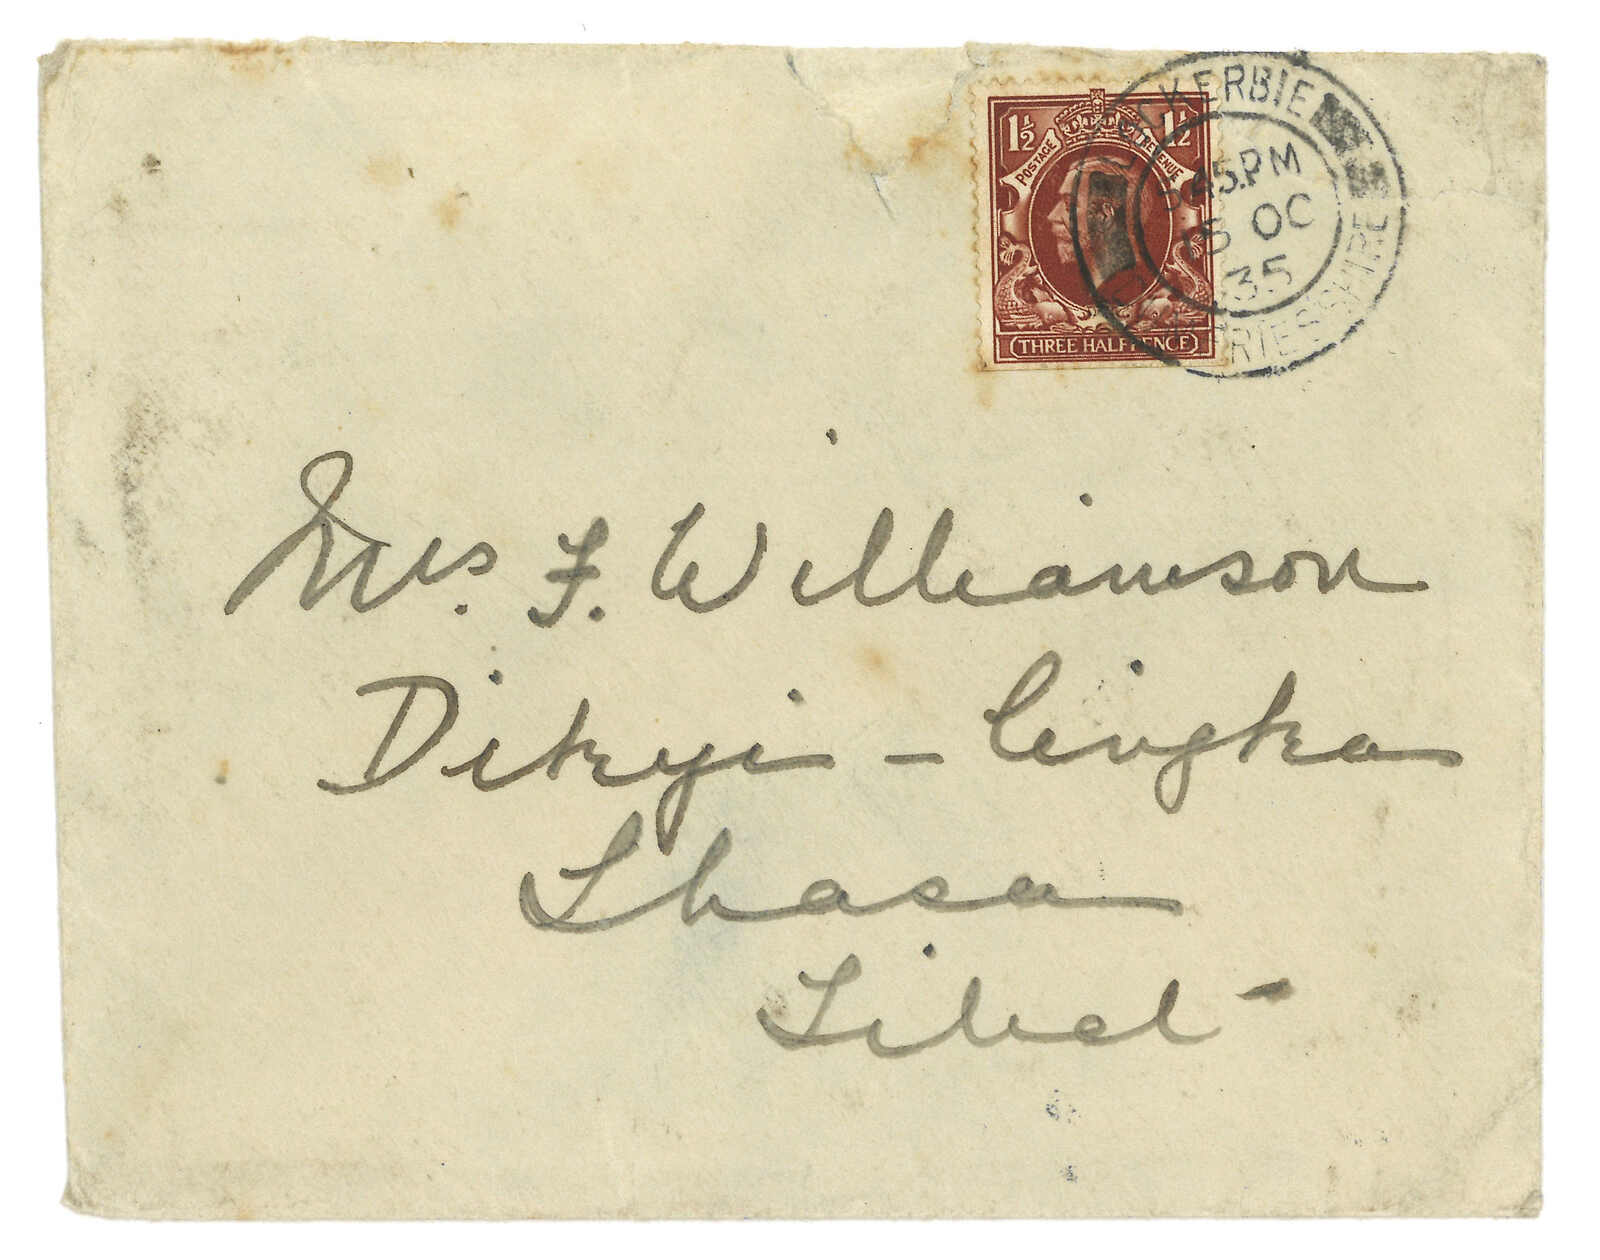 1½ 1½
POSTAGE REVENUE
THREE HALFPENCE
LOCKERBIE
45.PM
15 OC
35
DUMFRIESSHIRE
Mrs. F. Williamson
Dikyi - Lingka
Lhasa
Tibet